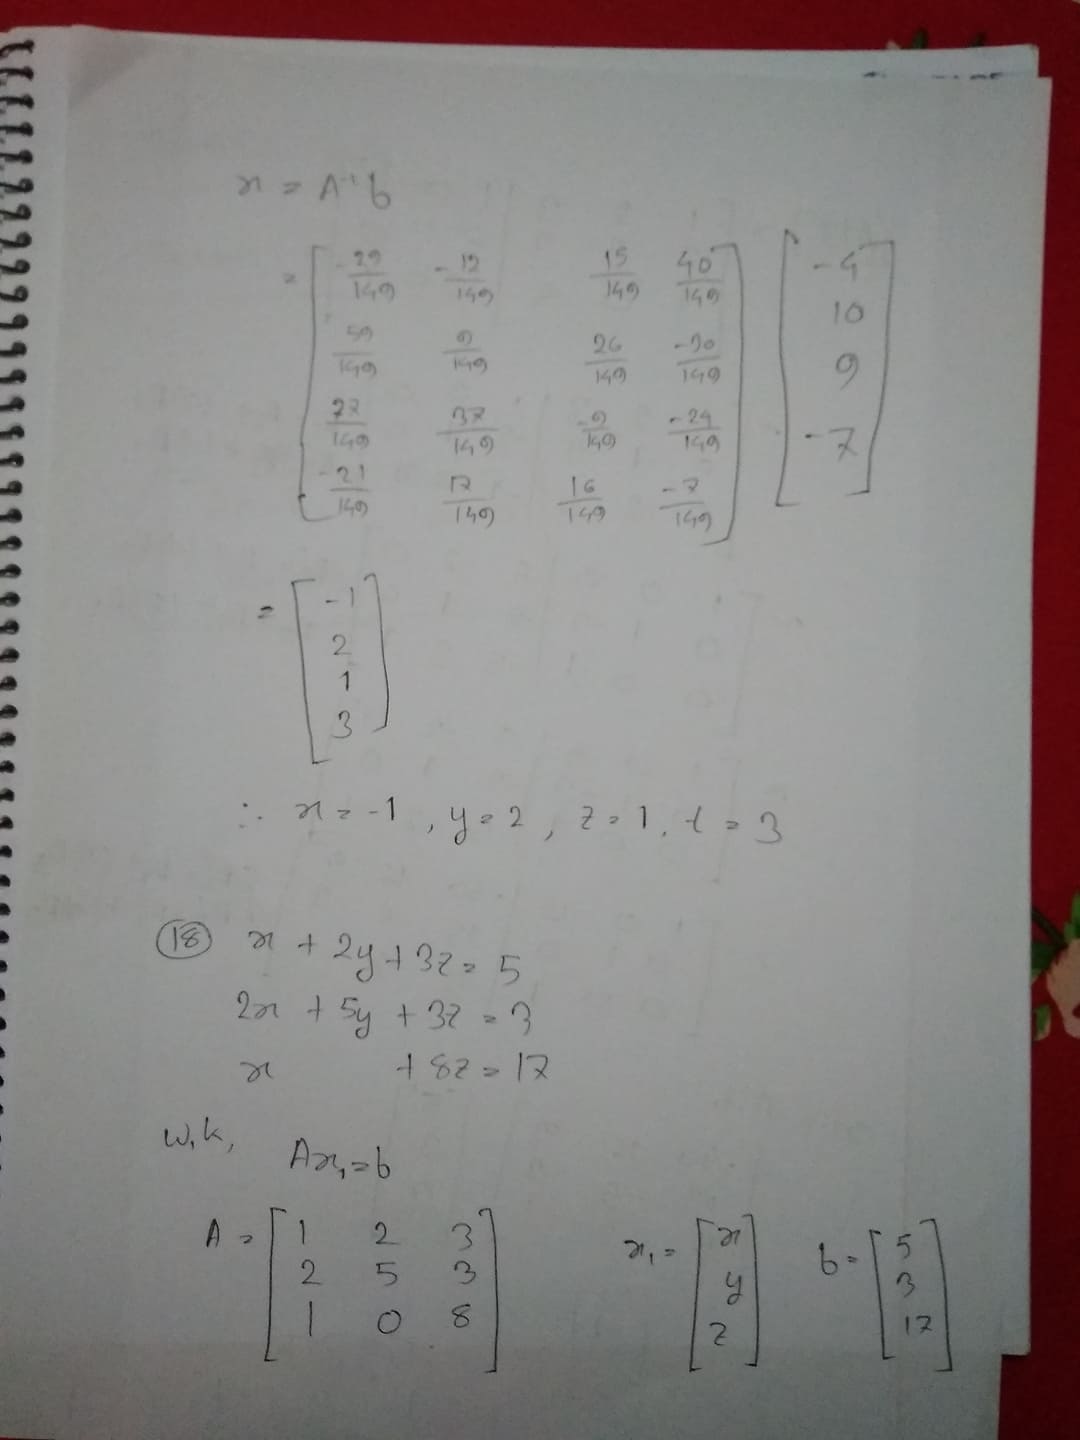 x = A⁻¹b
= [ -29/149 -12/149 15/149 40/149 ] [ -4 ]
[ 59/149 9/149 26/149 -30/149 ] [ 10 ]
[ 37/149 -9/149 -24/149 ] [ 9 ]
[ -21/149 17/149 16/149 -7/149 ] [ -7 ]
= [ -1
2
1
3 ]
∴ x = -1, y = 2, z = 1, t = 3
18 x + 2y + 3z = 5
2x + 5y + 3z = 3
x + 8z = 17
W.k, Ax₁ = b
A = [ 1 2 3 ] x₁ = [ x ] b = [ 5 ]
[ 2 5 3 ] [ y ] [ 3 ]
[ 1 0 8 ] [ z ] [ 17 ]